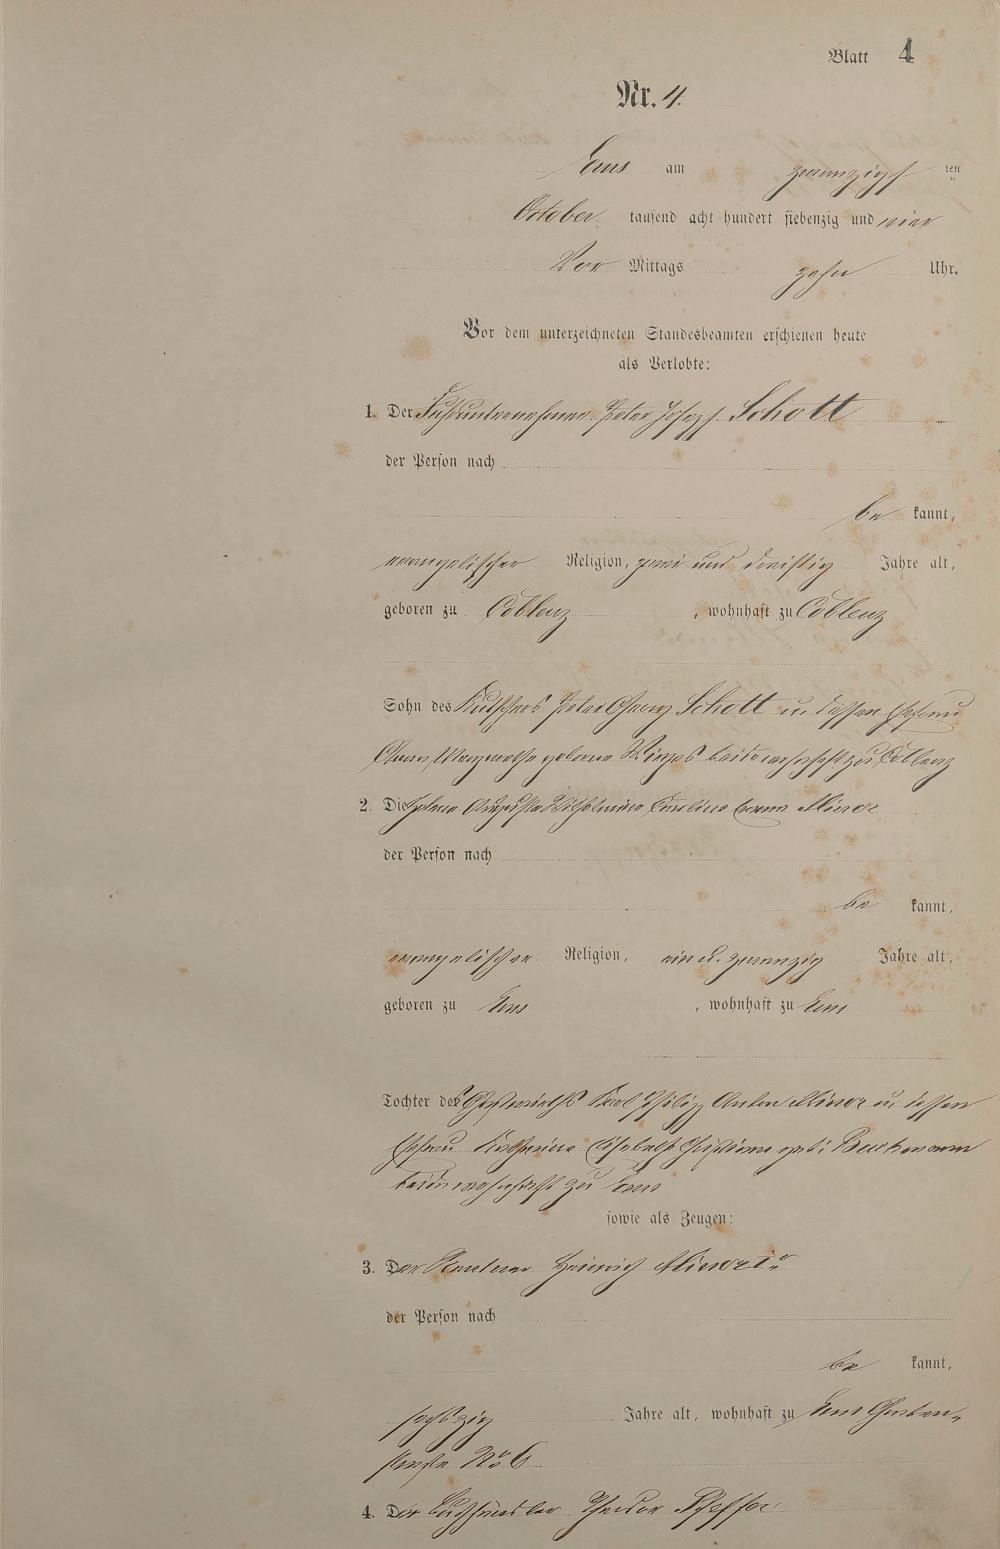 Blatt 4
Nr. 4.
Ems am zwanzigst ten
October tausend acht hundert siebenzig und vier
Vor Mittags zehn Uhr.
Vor dem unterzeichneten Standesbeamten erschienen heute
als Verlobte:
1. Der Fuhrunternehmer Peter Joseph Schott
der Person nach
be kannt,
evangelischer Religion, zwei und dreißig Jahre alt,
geboren zu Coblenz, wohnhaft zu Coblenz
Sohn des Kutschers Peter Georg Schott u. dessen Ehefrau
Anna Margarethe geborene beide wohnhaft zu Coblenz
2. Die Helene Auguste Wilhelmine Caroline Minor
der Person nach
be kannt,
evangelischer Religion, ein u. zwanzig Jahre alt,
geboren zu Ems, wohnhaft zu Ems
Tochter des Gastwirths Karl Philipp Anton Minor u. dessen
Ehefrau Katharine Elisabeth Christiane geb: Buchmann
beide wohnhaft zu Ems
sowie als Zeugen:
3. Der Rentner Heinrich Minor
der Person nach
be kannt,
sechszig Jahre alt, wohnhaft zu Ems Graben-
straße No 6
4. Der Buchhändler Theodor Pfeffer